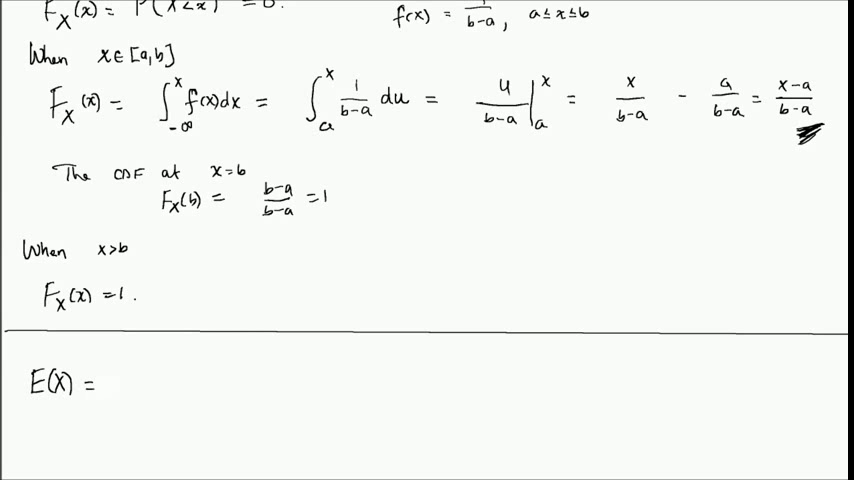 F_X(x) = P(X<x) = 0.
f(x) = 1/(b-a), a≤x≤b
When x∈[a,b]
F_X(x) = ∫_{-∞}^{x} f(x)dx = ∫_a^x 1/(b-a) du = u/(b-a) |_a^x = x/(b-a) - a/(b-a) = (x-a)/(b-a)
The CDF at x=b
F_X(b) = (b-a)/(b-a) = 1
When x>b
F_X(x) = 1.
E(X) =